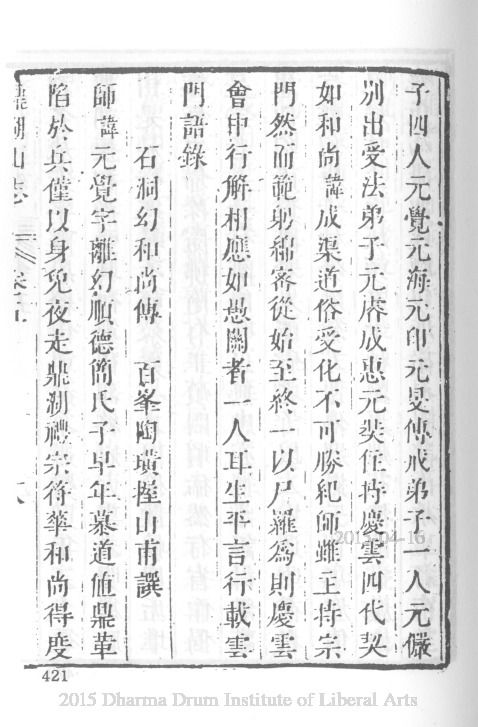 子四人元覺元海元印元旻傳戒弟子一人元儼
別出受法弟子元㾗成惠元奘住持慶雲四代契
如和尚諱成渠道俗受化不可勝紀師雖主持宗
門然而範躬綿審從始至終一以尸羅為則慶雲
會中行解相應如愚關者一人耳生平言行載雲
門語錄
石洞幻和尚傳　百峯陶璜握山甫譔
師諱元覺字離幻順德簡氏子早年慕道值鼎革
陷於兵僅以身免夜走鼎湖禮宗符華和尚得度
鼎湖山志　卷之五
421
2015-04-16
2015 Dharma Drum Institute of Liberal Arts